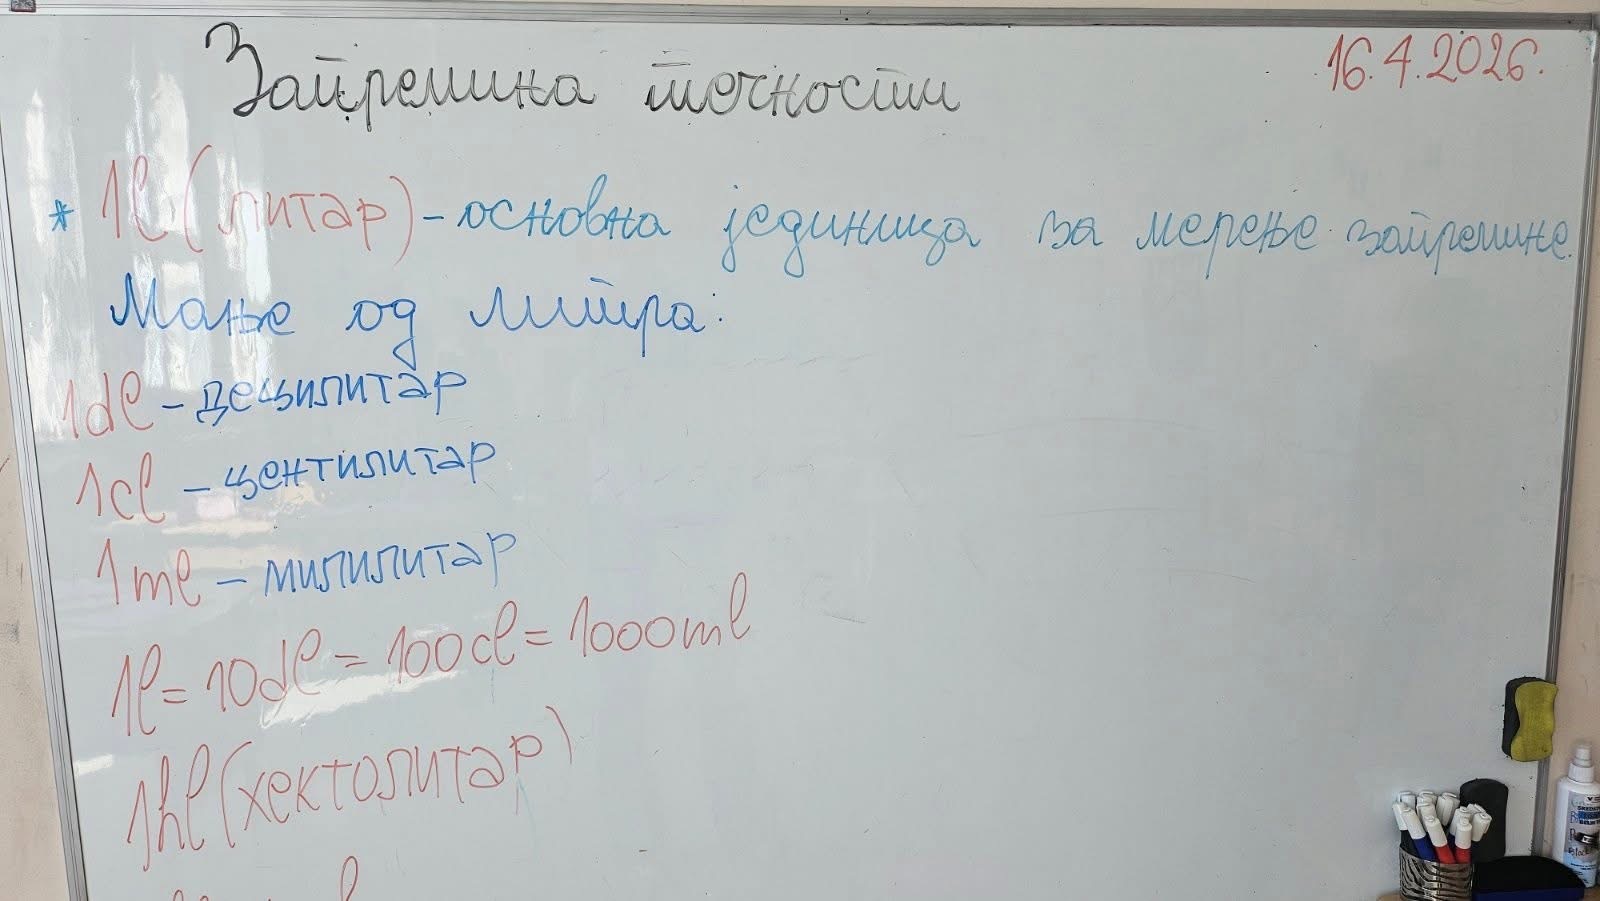 Запремина течности
16.4.2026.
* 1l (литар) - основна јединица за мерење запремине.
Мање од литра:
1dl - децилитар
1cl - центилитар
1ml - милилитар
1l = 10dl = 100cl = 1000ml
1hl (хектолитар)